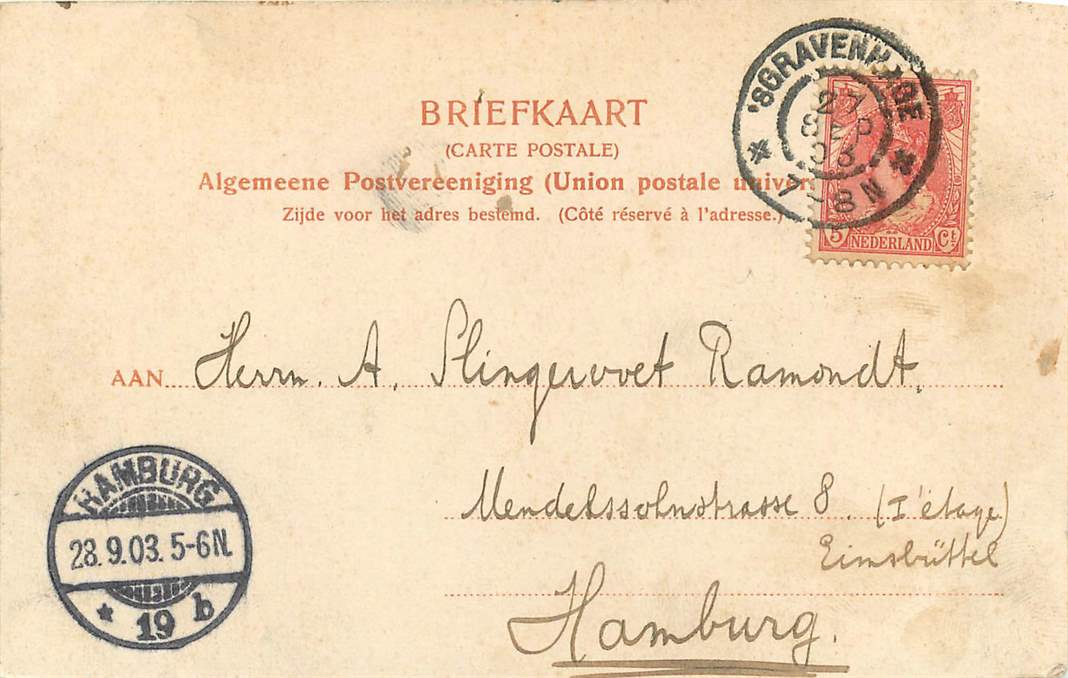 BRIEFKAART
(CARTE POSTALE)
Algemeene Postvereeniging (Union postale univer
Zijde voor het adres bestemd. (Côté réservé à l'adresse.)
'SGRAVENHAGE
27
SEP
03
7-8N
5 NEDERLAND Ct
AAN Herrn. A. Slingervoet Ramondt.
Mendelssohnstrasse 8. (I' étage)
Eimsbüttel
Hamburg.
HAMBURG
28.9.03. 5-6N.
* 19 b